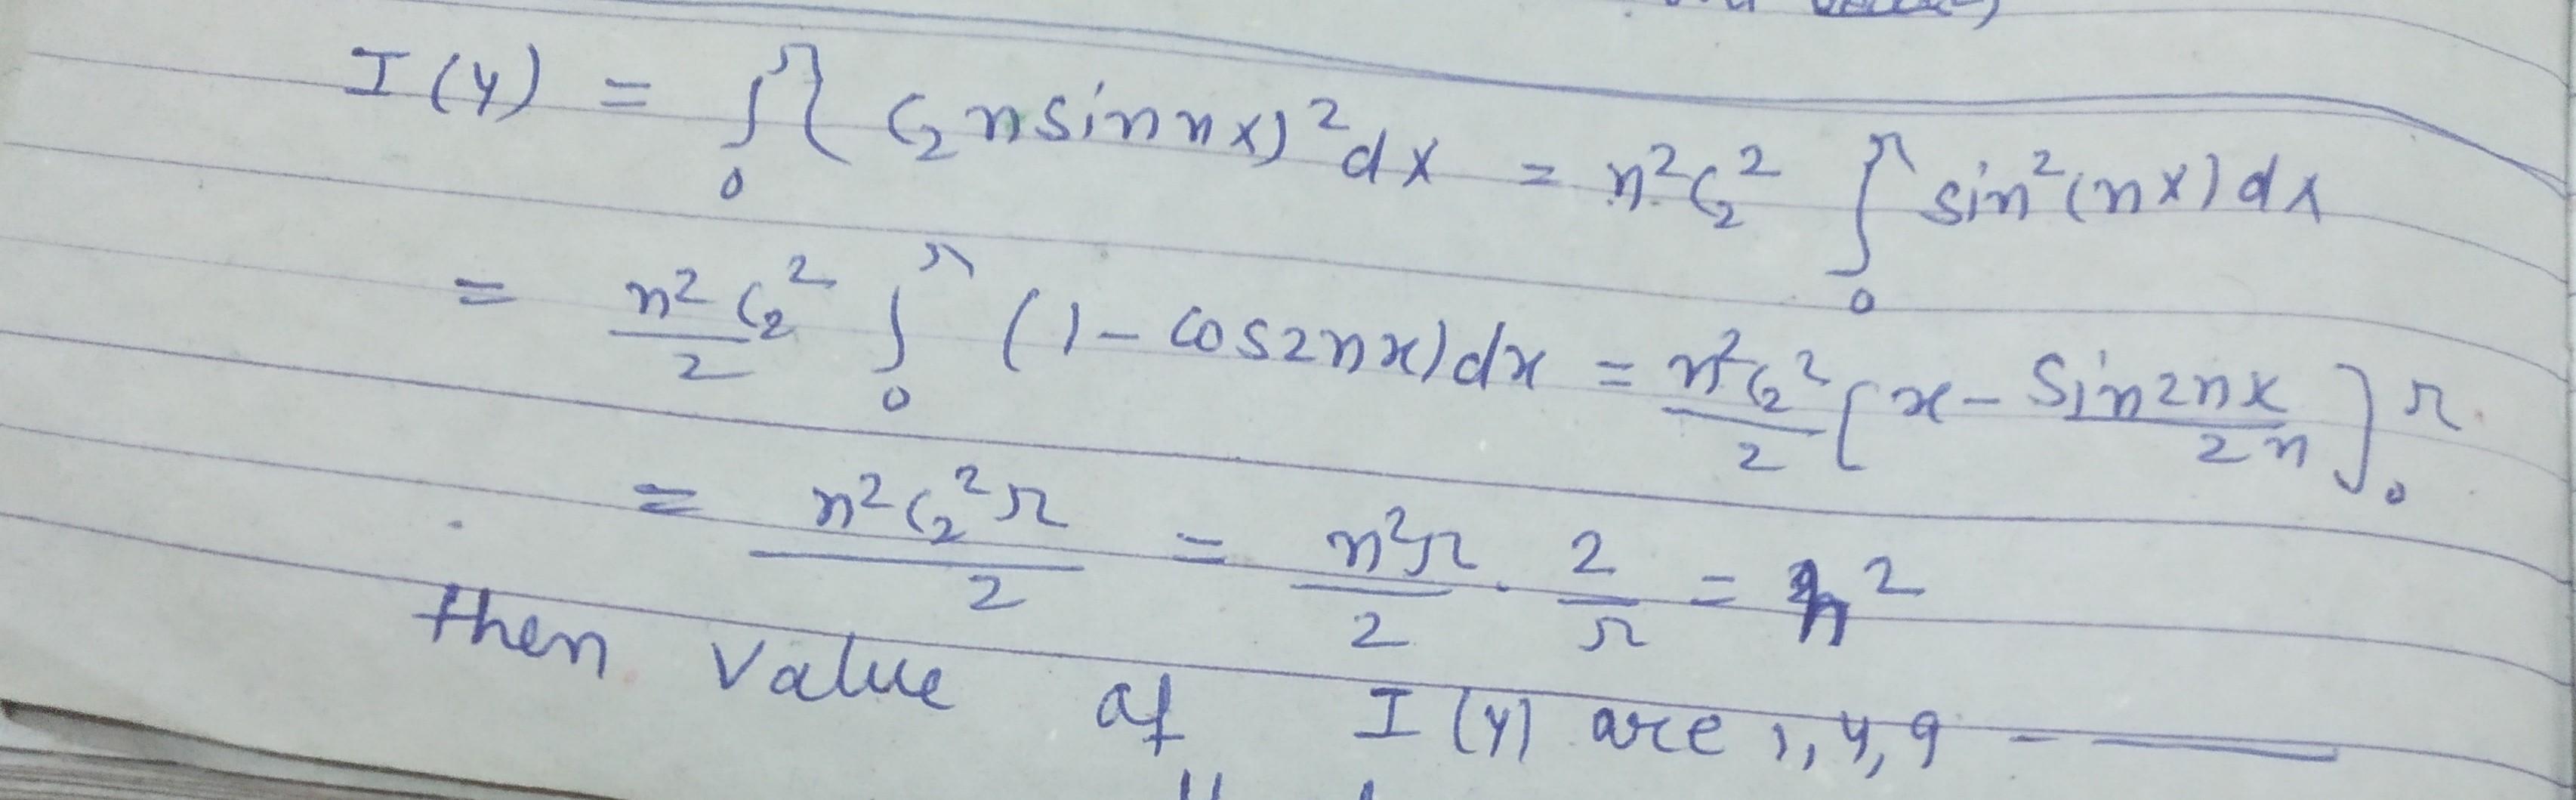 I(y) = ∫₀^π { (c₂ n sin nx)² dx = n² c₂² ∫₀^π sin²(nx) dx
= n² c₂² / 2 ∫₀^π (1 - cos 2nx) dx = n² c₂² / 2 [x - sin 2nx / 2n]₀^π
= n² c₂² π / 2 = n² π / 2 · 2 / π = n²
then value of I(y) are 1, 4, 9 - —